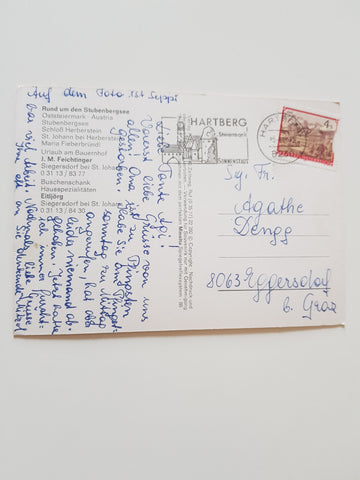 Auf dem Foto ist Seppi
Rund um den Stubenbergsee
Oststeiermark · Austria
Stubenbergsee
Schloß Herberstein
St. Johann bei Herberstein
Maria Fieberbründl
Urlaub am Bauernhof
I. M. Feichtinger
Siegersdorf bei St. Johann
0 31 13 / 83 77
Buschenschank
Hausspezialitäten
Eitljörg
Siegersdorf bei St. Johann
0 31 13 / 84 30
Liebe Tante Agi!
Vorerst liebe Grüsse von uns
allen! Oma ist zu Pfingsten
gestorben. Habe Sie am Pfingst-
sonntag zu Mittag
angerufen, hat aber
leider niemand ab-
gehoben. Jetzt hatte
ich immer furcht-
bar viel Arbeit.
liebe Grüsse
HARTBERG
Steiermark
SONNENSTADT
HARTB
8230
4
Sg. Fr.
Agathe
Dengg
8063 Eggersdorf
b. Graz